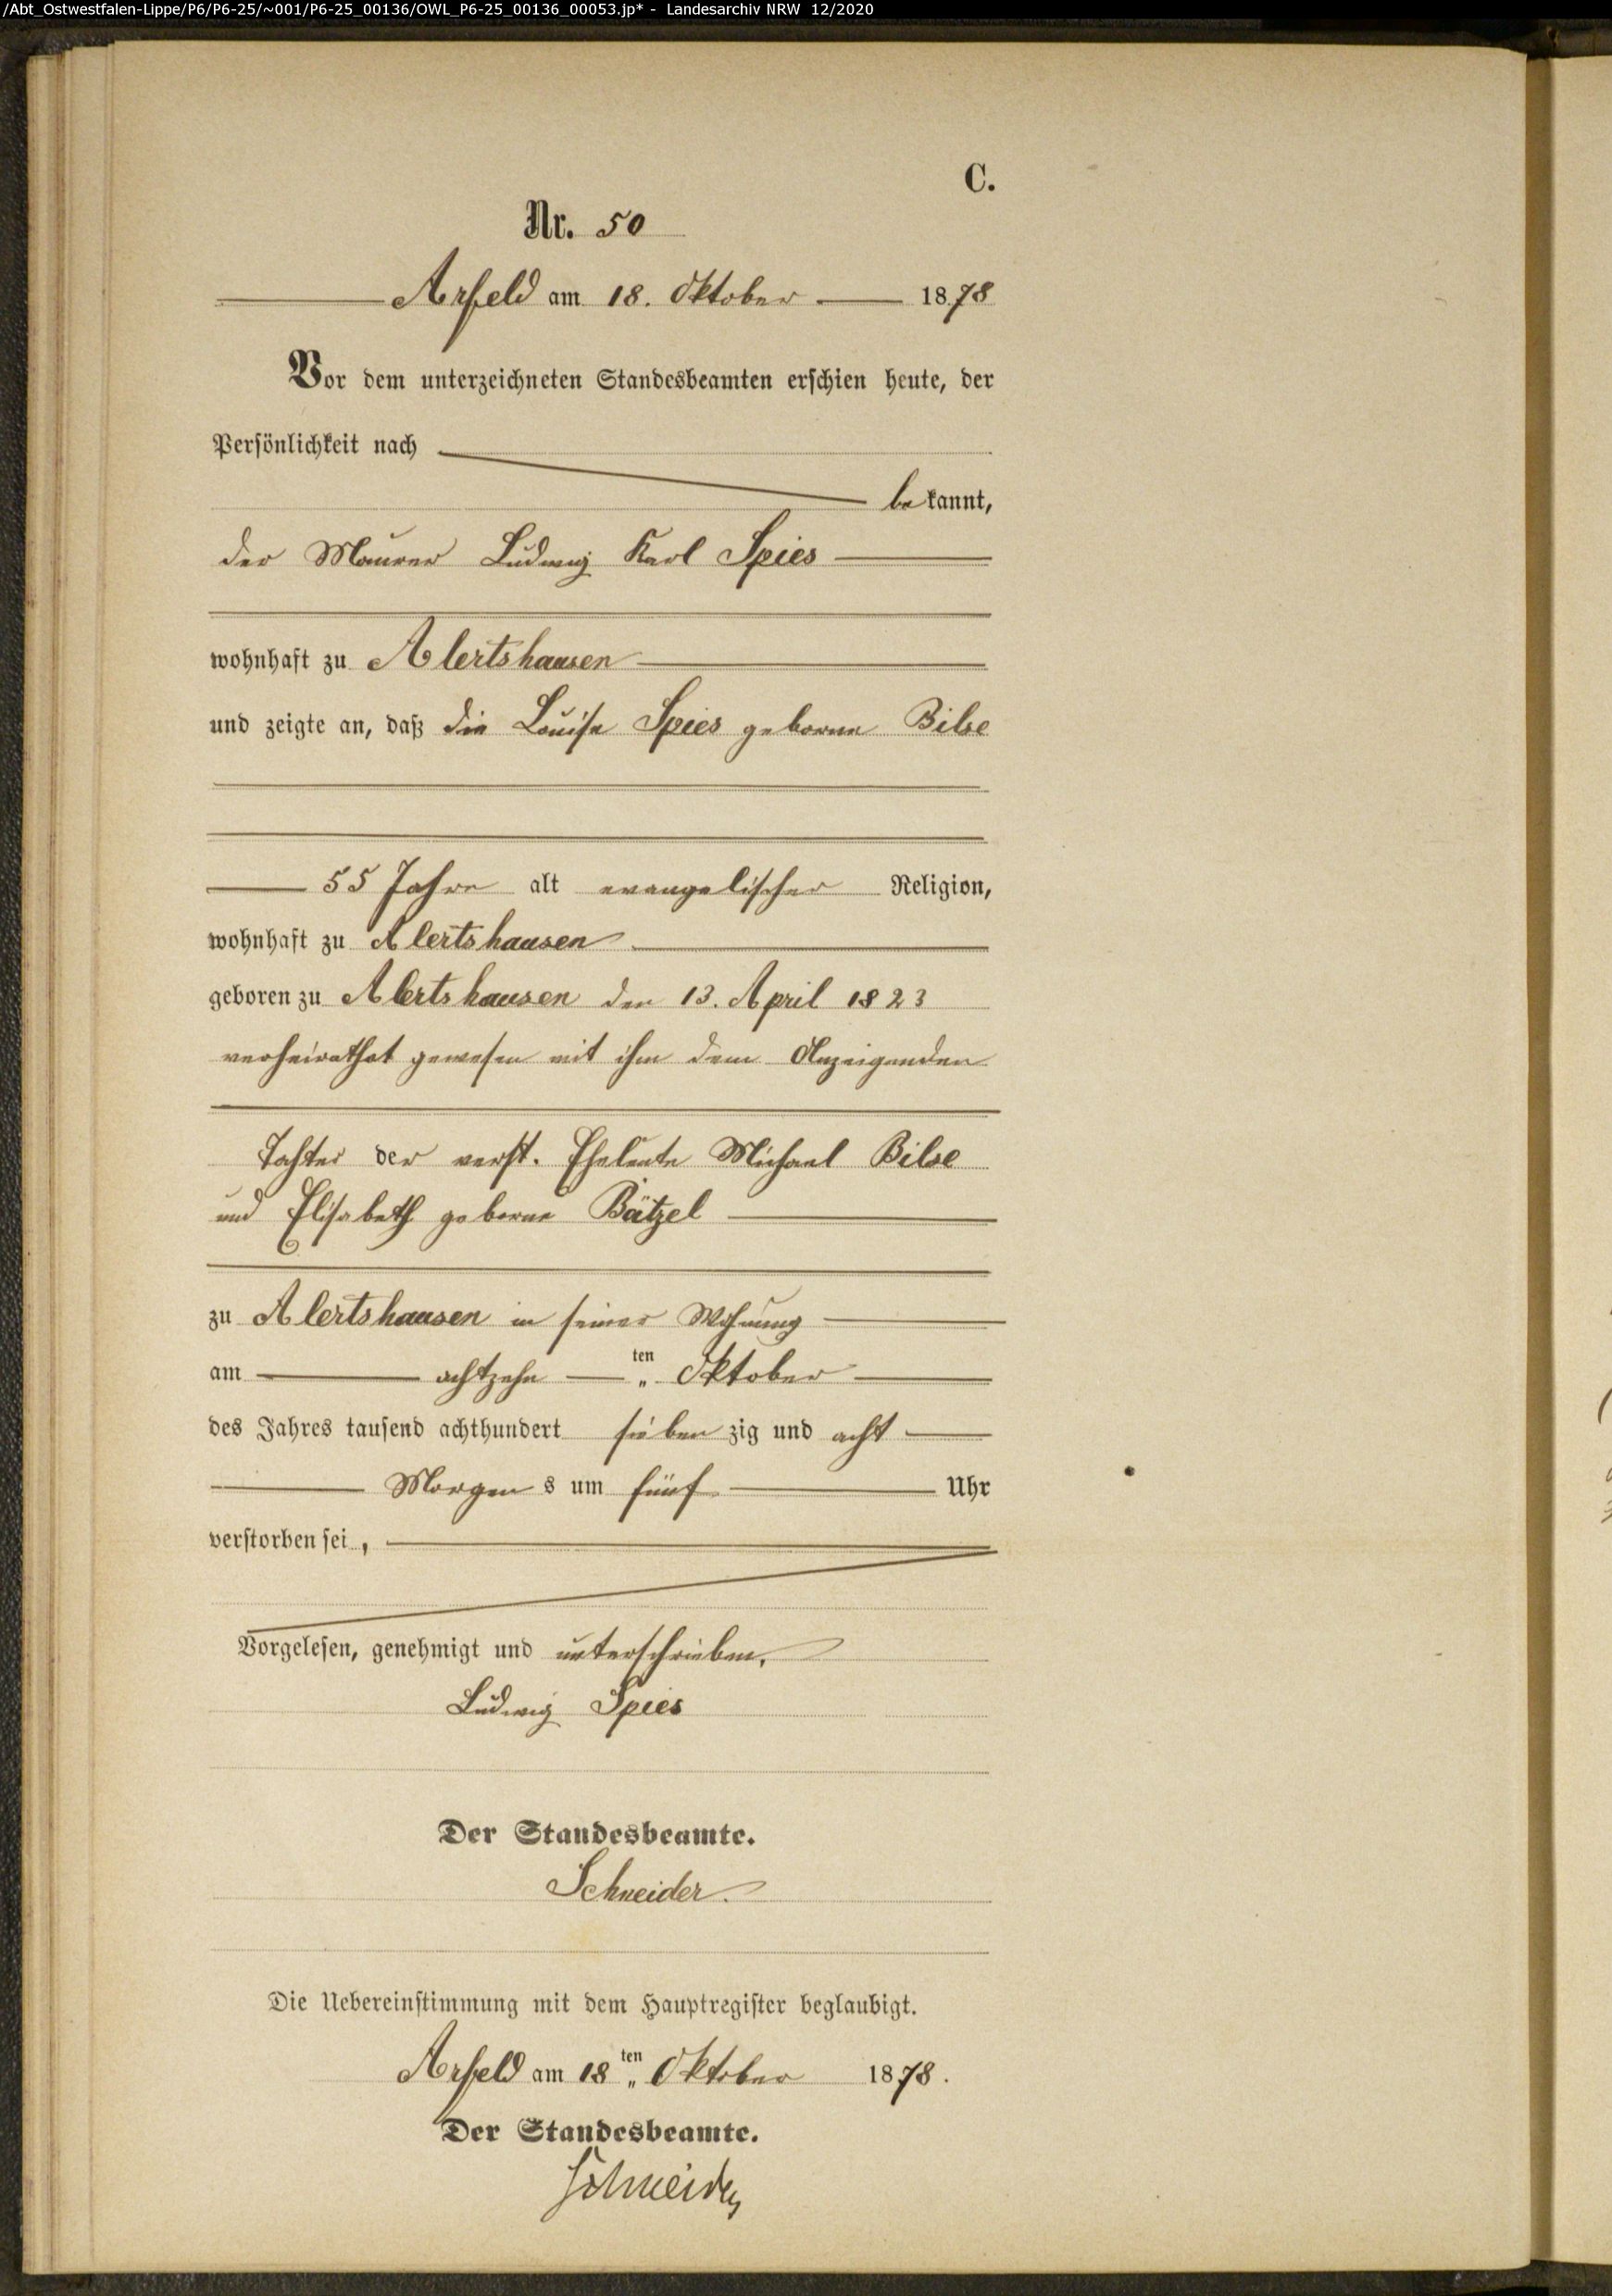 /Abt_Ostwestfalen-Lippe/P6/P6-25/~001/P6-25_00136/OWL_P6-25_00136_00053.jp* - Landesarchiv NRW 12/2020
C.
Nr. 50
Arfeld am 18. Oktober 1878
Vor dem unterzeichneten Standesbeamten erschien heute, der
Persönlichkeit nach
bekannt,
der Maurer Ludwig Karl Spies
wohnhaft zu Alertshausen
und zeigte an, daß die Louise Spies geborne Bilse
55 Jahre alt evangelischer Religion,
wohnhaft zu Alertshausen
geboren zu Alertshausen den 13. April 1823
verheirathet gewesen mit ihm dem Anzeigenden
Tochter der verst. Eheleute Michael Bilse
und Elisabeth geborne Bätzel
zu Alertshausen in seiner Wohnung
am achtzehn ten Oktober
des Jahres tausend achthundert siebenzig und acht
Morgens um fünf Uhr
verstorben sei,
Vorgelesen, genehmigt und unterschrieben.
Ludwig Spies
Der Standesbeamte.
Schneider.
Die Uebereinstimmung mit dem Hauptregister beglaubigt.
Arfeld am 18ten Oktober 1878.
Der Standesbeamte.
Schneider